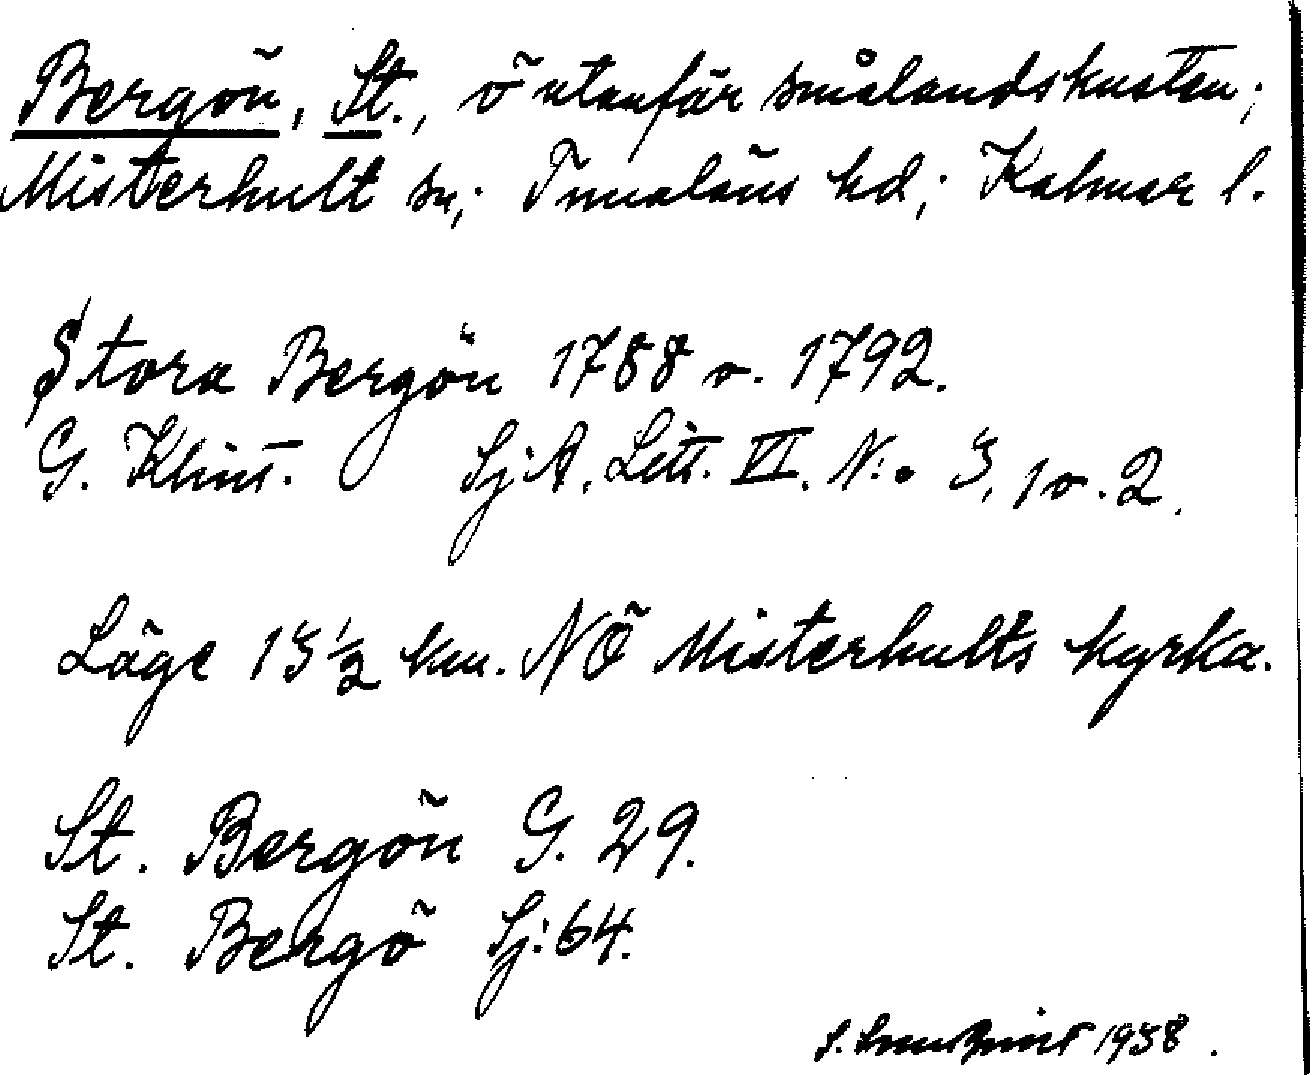 Bergön, St., ö utanför smålandskusten;
Misterhult sn; Tunaläns hd; Kalmar l.
Stora Bergön 1788 o. 1792.
G. Klint. Sj:A. Litt. VI. N:o 3, 1 o. 2.
Läge 13 1/2 km. NÖ Misterhults kyrka.
St. Bergön G. 29.
St. Bergö Sj:64.
1938.